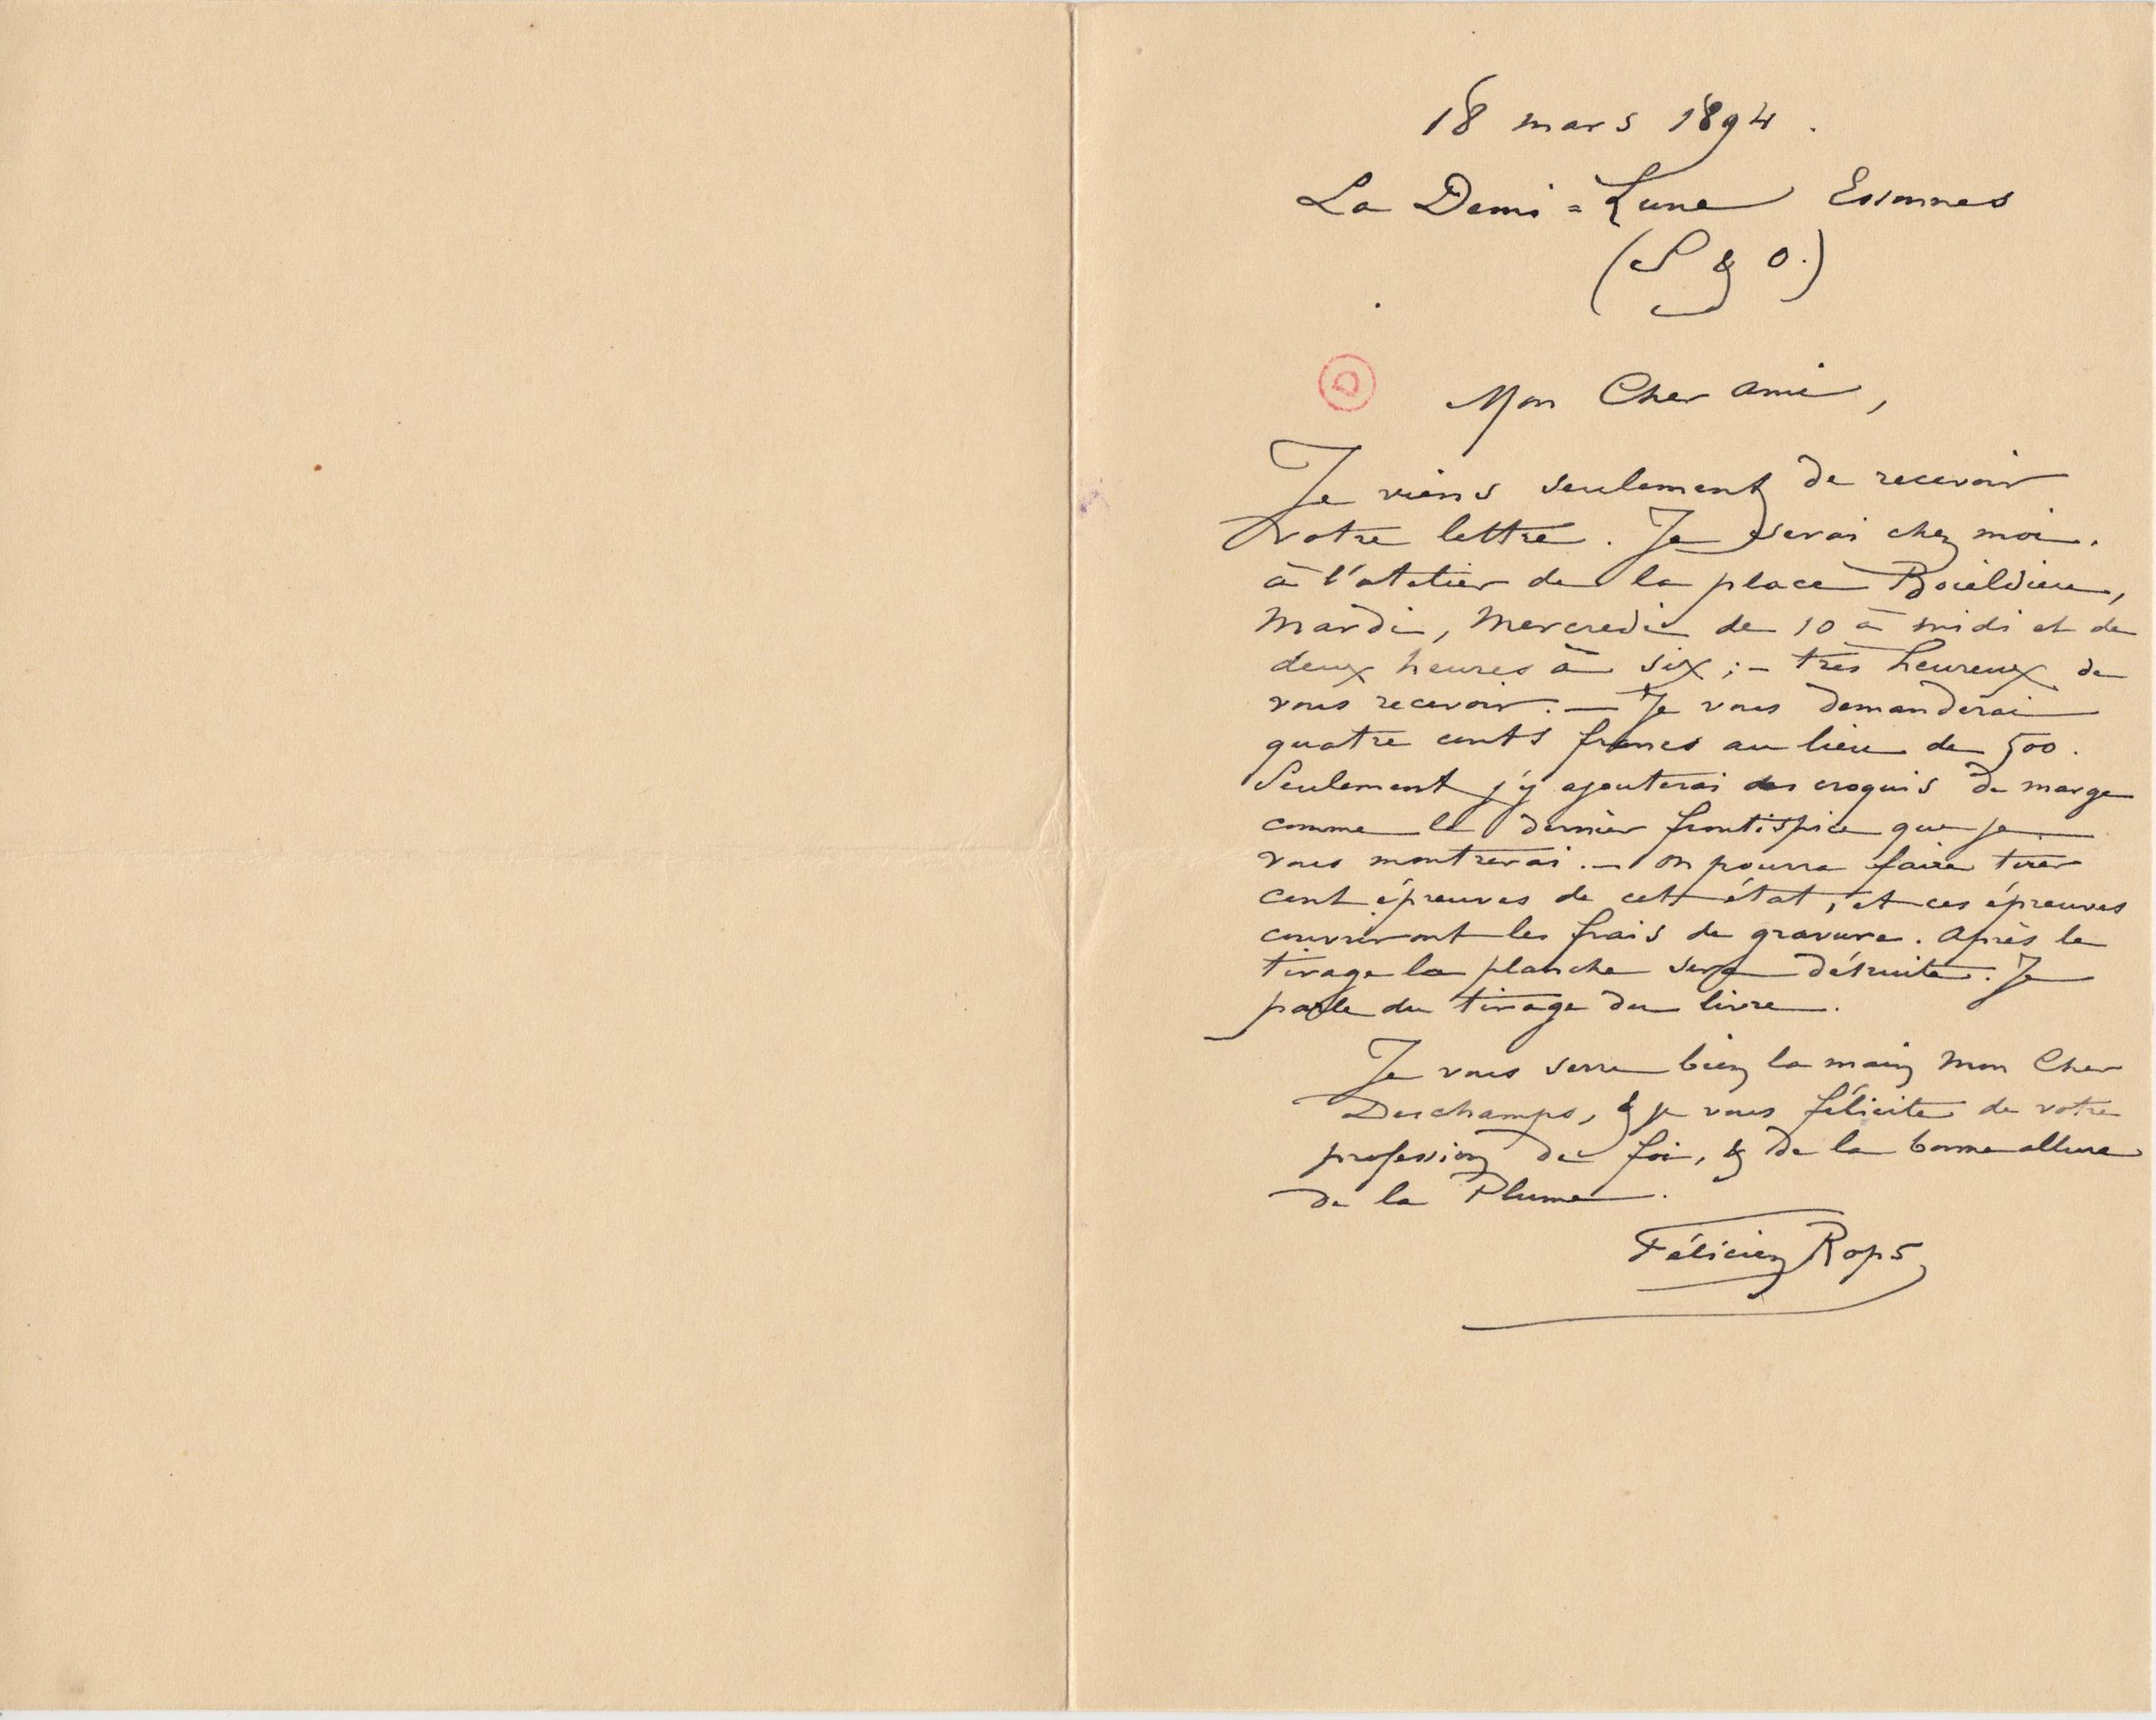 18 mars 1894.
La Demi=Lune Essonnes
(S & O.)
D
Mon Cher ami,
Je viens seulement de recevoir
votre lettre. Je serai chez moi.
à l'atelier de la place Boieldieu,
Mardi, Mercredi de 10 à midi et de
deux heures à six ; – très heureux de
vous recevoir. — Je vous demanderai
quatre cents francs au lieu de 500.
Seulement j'y ajouterai des croquis de marge
comme le dernier frontispice que je
vous montrerai. – On pourra faire tirer
cent épreuves de cet état, et ces épreuves
couvriront les frais de gravure. Après le
tirage la planche sera détruite. Je
parle du tirage du livre.
Je vous serre bien la main mon Cher
Deschamps, & je vous félicite de votre
profession de foi, & de la bonne allure
de la Plume.
Félicien Rops